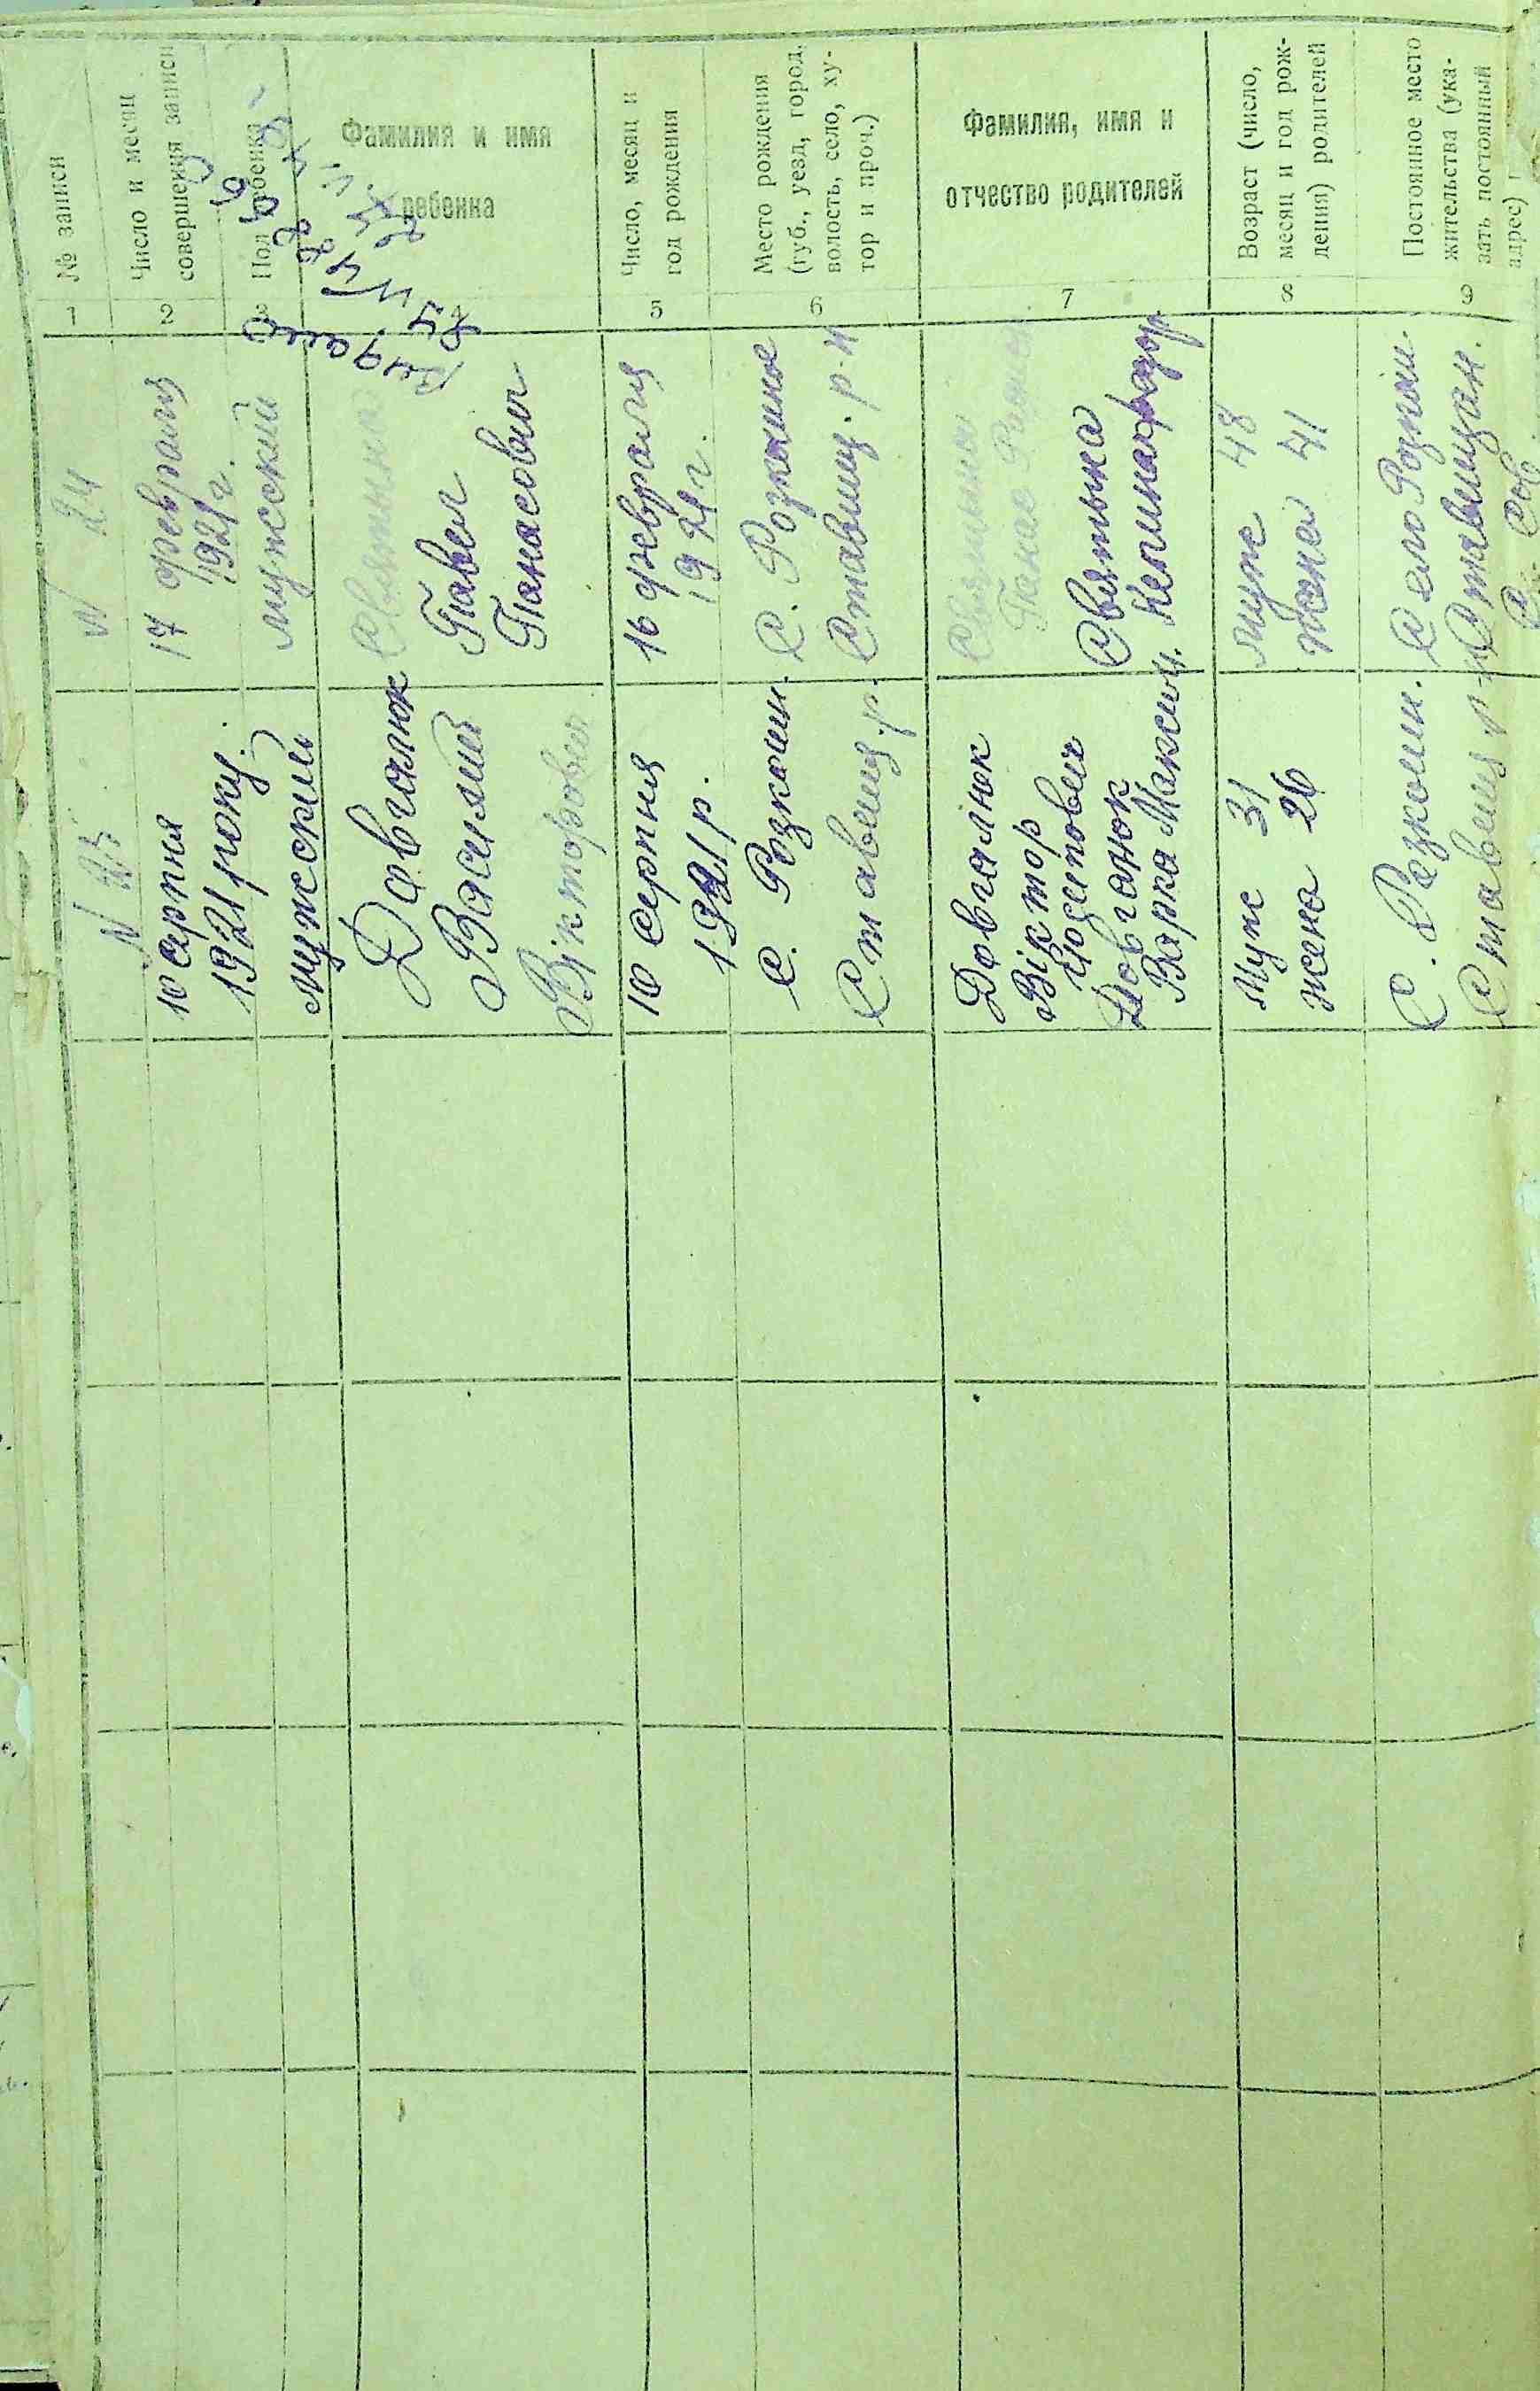 № записи
Число и месяц
совершения записи
Пол ребенка
Фамилия и имя
ребенка
Число, месяц и
год рождения
Место рождения
(губ., уезд, город,
волость, село, ху-
тор и проч.)
Фамилия, имя и
отчество родителей
Возраст (число,
месяц и год рож-
дения) родителей
Постоянное место
жительства (ука-
зать постоянный
адрес)
1
2
3
4
5
6
7
8
9
N 24
17 февраля
1921 г.
мужской
Святына
Павел
Панасович
16 февраля
1921 г.
С. Розкишное
Ставищ. р-н
Святына
Панас
Святына
муж 48
жена 41
Село Розкіш.
Ставищан.
N 25
10 серпня
1921 року.
мужский
Довгалюк
Василий
Вікторович
10 серпня
1921 р.
С. Розкоши.
Ставищ. р.
Довгалюк
Віктор
Юсипович
Довганюк
Варка Максим.
Муж 31
жена 26
С. Розкоши.
Ставищ р-н